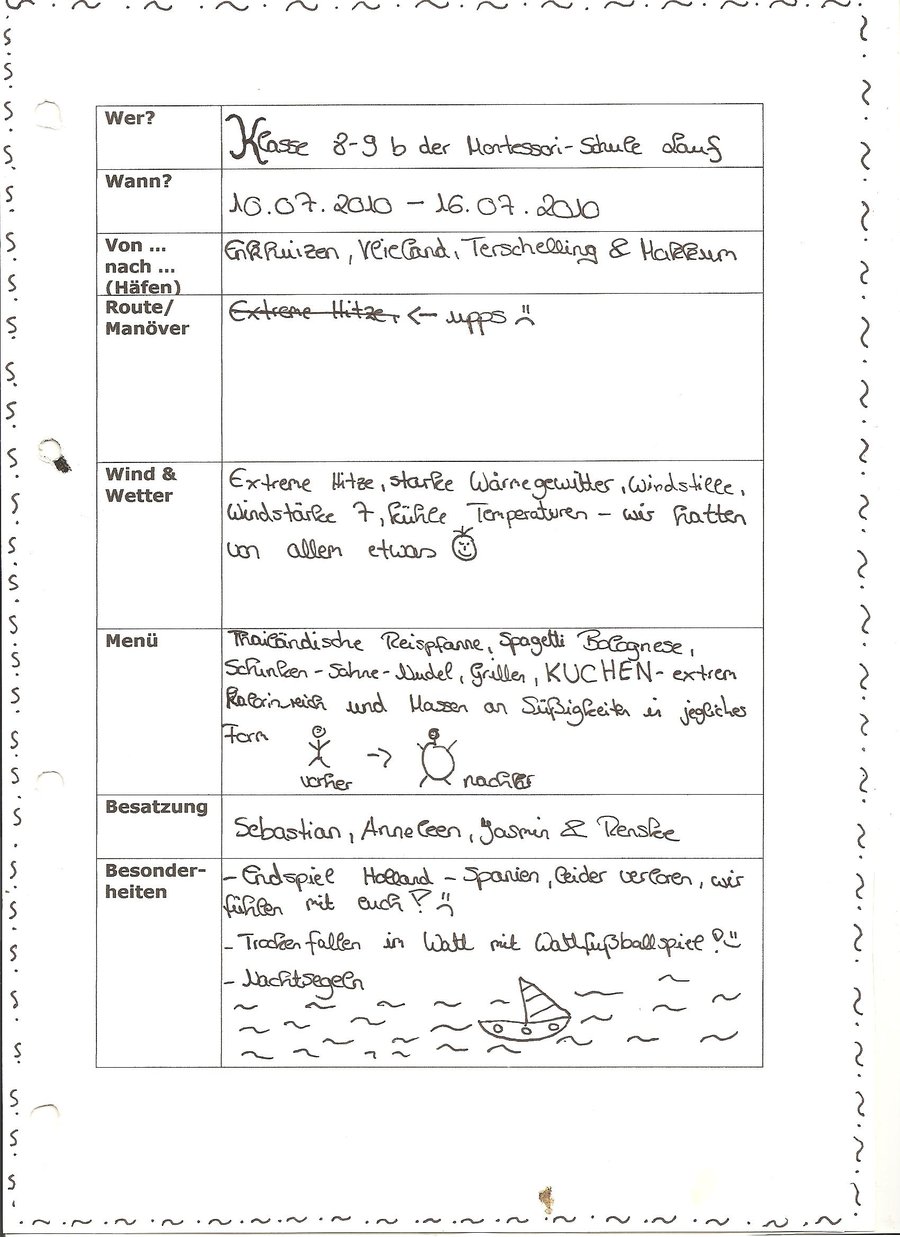 Wer?
Klasse 8-9 b der Montessori-Schule Lauf
Wann?
10.07.2010 - 16.07.2010
Von ...
nach ...
(Häfen)
Enkhuizen, Vlieland, Terschelling & Makkum
Route/
Manöver
Extreme Hitze, <- upps
Wind &
Wetter
Extreme Hitze, starke Wärmegewitter, Windstille,
Windstärke 7, kühle Temperaturen - wir hatten
von allem etwas
Menü
Thailändische Reispfanne, Spagetti Bolognese,
Schinken-Sahne-Nudel, Grillen, KUCHEN - extrem
kalorinreich und Massen an Süßigkeiten in jeglicher
Form
vorher -> nachher
Besatzung
Sebastian, Anneleen, Yasmin & Renske
Besonder-
heiten
- Endspiel Holland - Spanien, leider verloren, wir
fühlen mit euch!
- Trocken fallen im Watt mit Wattfußballspiel!
- Nachtsegeln